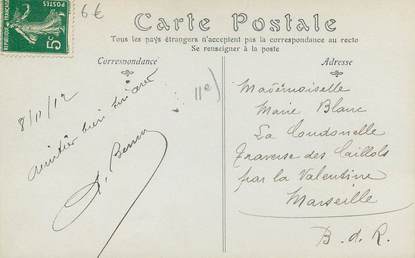 6€
RÉPUBLIQUE FRANÇAISE
5c
Carte Postale
Tous les pays étrangers n'acceptent pas la correspondance au recto
Se renseigner à la poste
Correspondance
Adresse
8/11/12
11e)
Mademoiselle
Marie Blanc
La Coudonelle
Traverse des Caillols
par la Valentine
Marseille
B. d. R.